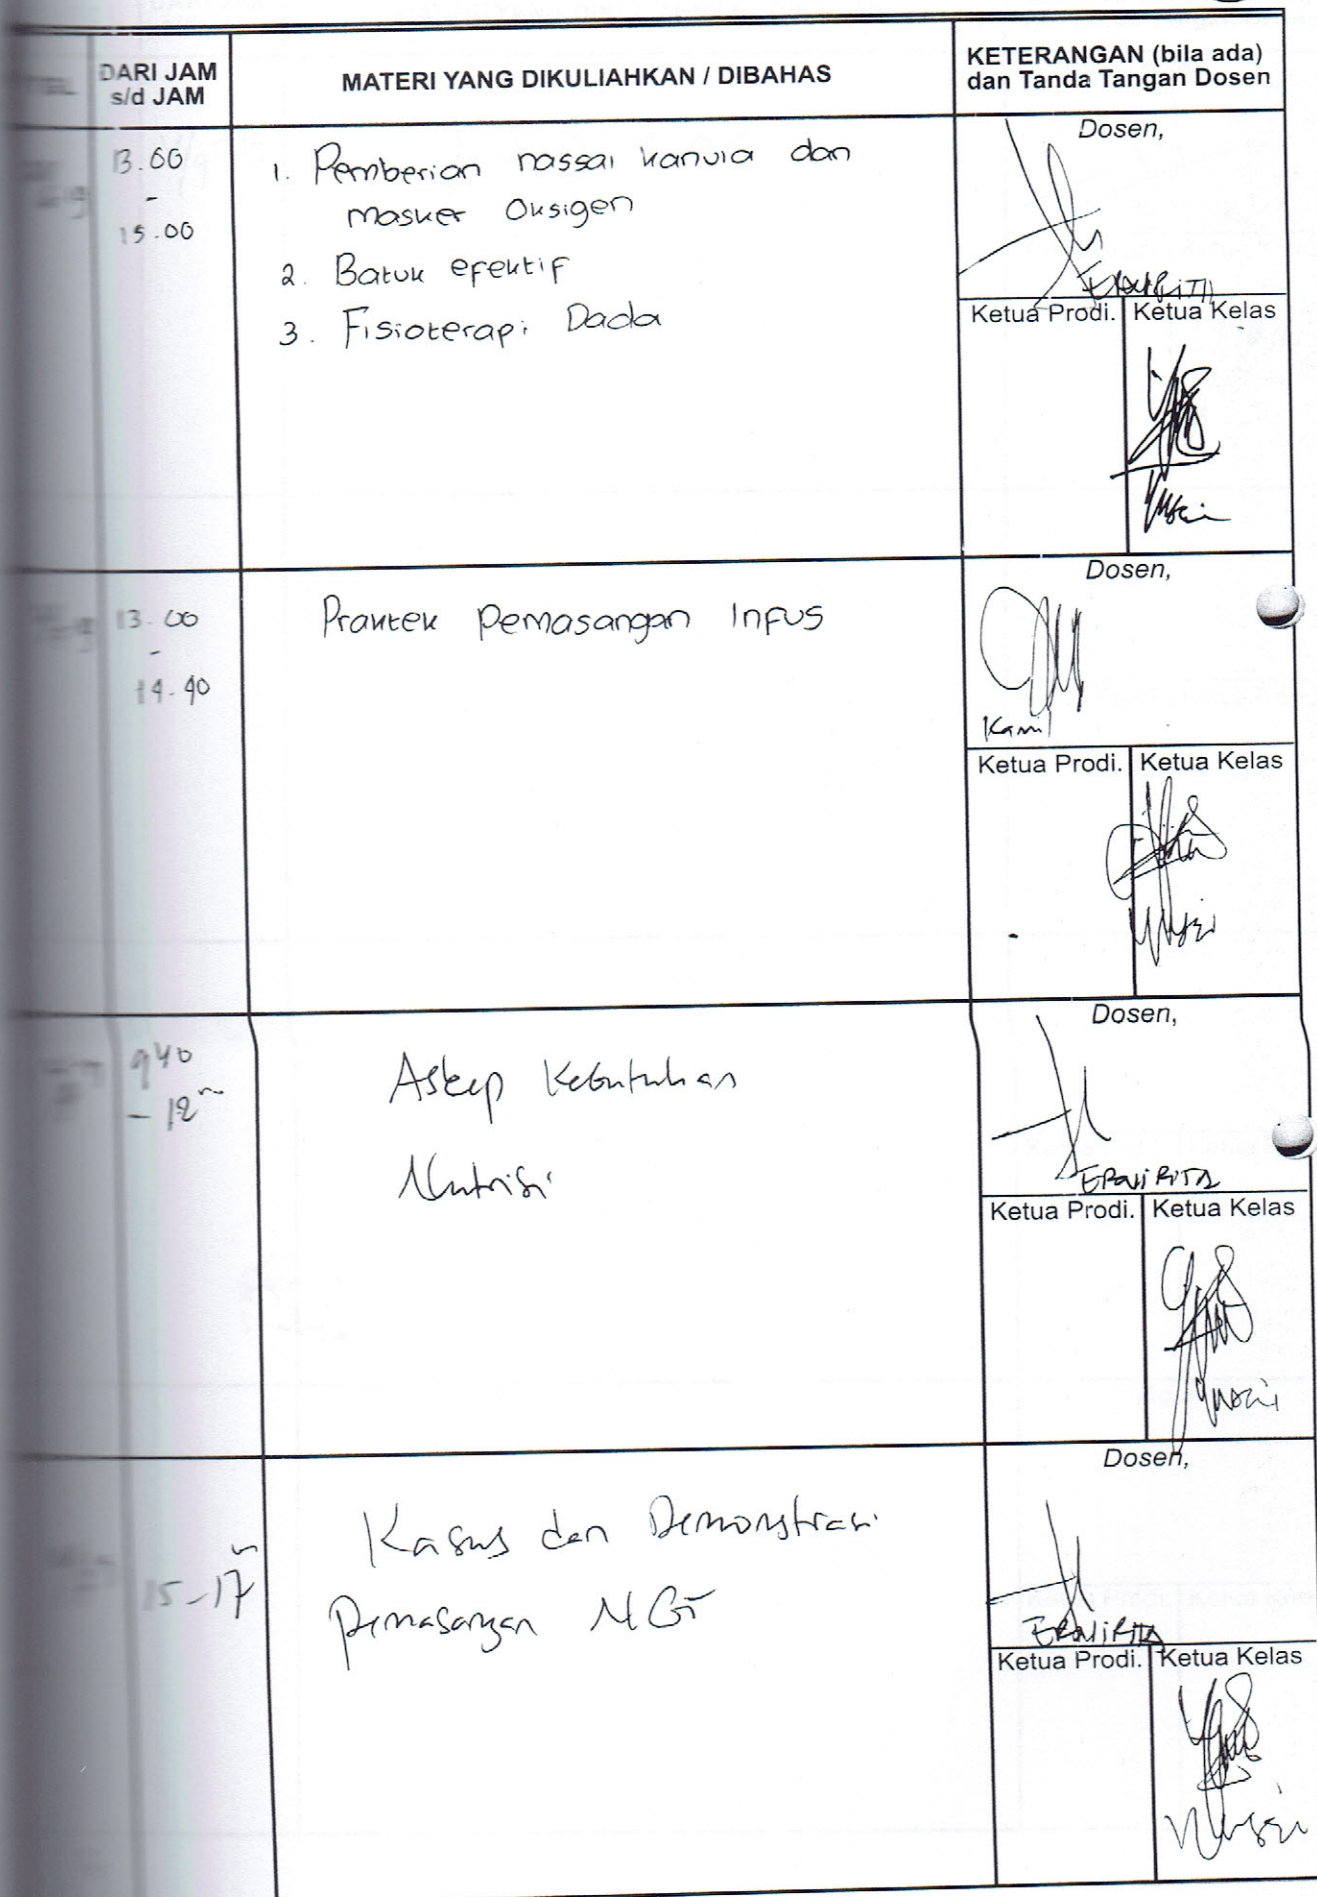 DARI JAM
s/d JAM
MATERI YANG DIKULIAHKAN / DIBAHAS
KETERANGAN (bila ada)
dan Tanda Tangan Dosen
13.00
-
15.00
1. Pemberian nassal kanula dan
masker Oksigen
2. Batuk efektif
3. Fisioterapi Dada
Dosen,
ERNIRITA
Ketua Prodi.
Ketua Kelas
13.00
-
14.40
Praktek Pemasangan Infus
Dosen,
Kamil
Ketua Prodi.
Ketua Kelas
9 40
- 12
Askep Kebutuhan
Nutrisi
Dosen,
ERNIRITA
Ketua Prodi.
Ketua Kelas
15-17
Kasus dan Demonstrasi
Pemasangan NGT
Dosen,
ERNIRITA
Ketua Prodi.
Ketua Kelas